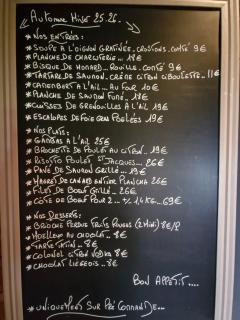 Automne Hiver 25.26.
* Nos Entrées:
* Soupe à l'oignon gratinée, croutons. comté 9€
* Planche de charcuterie... 18€
* Bisque de homard.. Rouille. comté 9€
* Tartare de saumon. crème citron ciboulette... 11€
* Camembert à l'ail ... au four 10€
* Planche de saumon fumé. 18€
* Cuisses de grenouilles à l'ail 19€
* Escalopes de foie gras poêlées 19€
* Nos Plats:
* Gambas à l'ail 25€
* Brochette de poulet au citron.. 19€
* Risotto Poulet St Jacques... 26€
* Pavé de saumon grillé ... 19€
* Magret de canard entier plancha 26€
* Filet de boeuf grillé .. 26€
* Côte de boeuf pour 2 ... +/- 1.4kg.. 69€
* Nos Desserts:
* Brioche perdue fruits rouges (2 mini) 8€/p
* Moelleux au chocolat... 8€
* Tarte tatin... 8€
* Colonel citron vodka 8€
* Chocolat liégeois.. 8€
Bon appétit....
* Uniquement sur